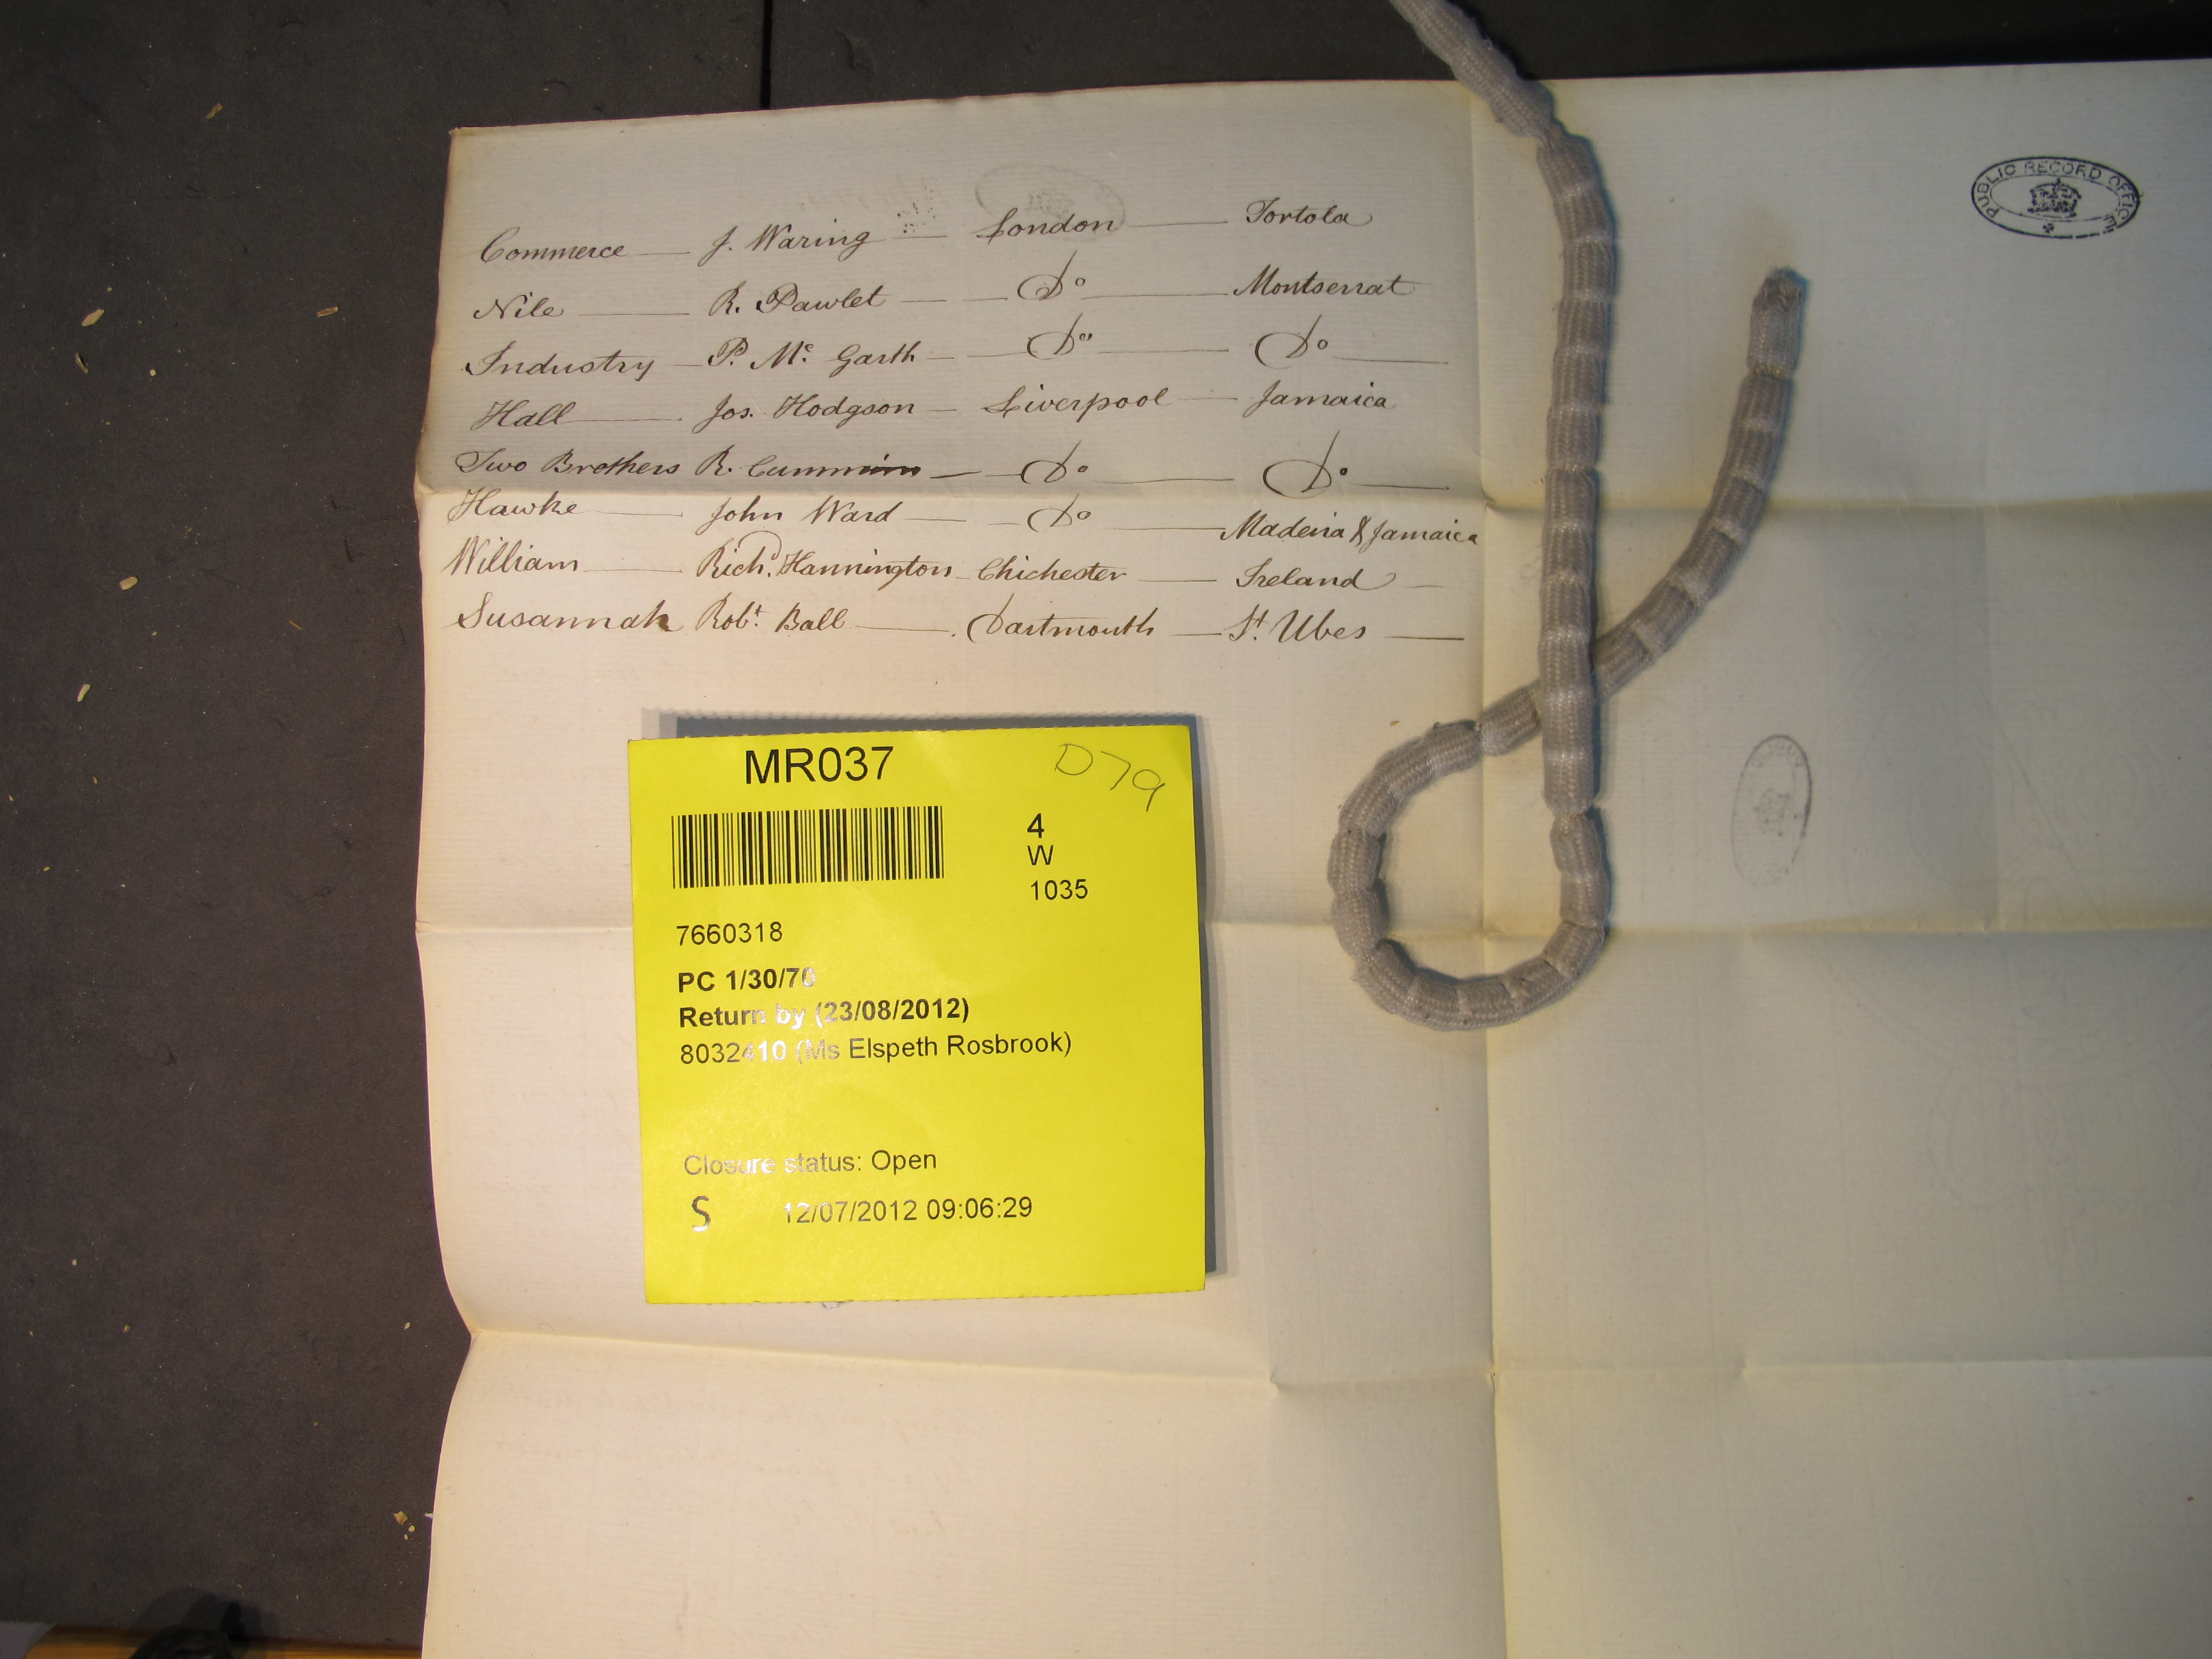 Commerce — J. Waring — London — Tortola
Nile — R. Pawlet — Do — Montserrat
Industry — P. Mc Garth — Do — Do
Hall — Jos. Hodgson — Liverpool — Jamaica
Two Brothers R. Cummins — Do — Do
Hawke — John Ward — Do — Madeira & Jamaica
William — Richd. Hannington — Chichester — Ireland —
Susannah Robt. Ball — Dartmouth — St. Ubes —
PUBLIC RECORD OFFICE
MR037
D79
4
W
1035
7660318
PC 1/30/70
Return by (23/08/2012)
8032410 (Ms Elspeth Rosbrook)
Closure status: Open
S 12/07/2012 09:06:29